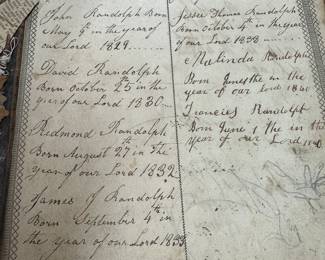 John Randolph Born
May 9th in the year of
our Lord 1829
David Randolph
Born October 25 in the
year of our Lord 1830
Redmond Randolph
Born August 27 in the
year of our Lord 1832
James J Randolph
Born September 4th in
the year of our Lord 1835
Jesse Thomas Randolph
Born October 1th in the year
of our Lord 1838
Malinda Randolph
Born June the in the
year of our lord 1840
Francies Randolph
Born June 1 the in the
year of our Lord